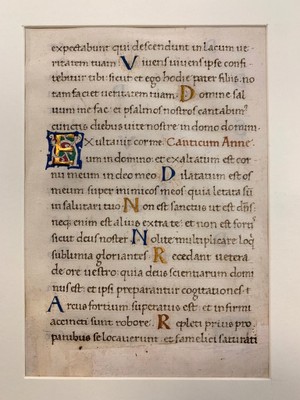 expectabunt qui descendunt in lacum ve
ritatem tuam Vivens vivens ipse confi
tebitur tibi: sicut et ego hodie pater filiis no
tam faciet veritatem tuam. Domine sal
vum me fac et psalmos nostros cantabim⁹
cunctis diebus vite nostre in domo domini.
Exultavit cor me Canticum Anne
um in domino: et exaltatum est cor
nu meum in deo meo Dilatatum est os
meum super inimicos meos quia letata sū
in salutari tuo Non est sanctus ut est dn̄s
neq; enim est alius extra te: et non est forti⁹
sicut deus noster Nolite multiplicare loq̄
sublimia gloriantes. Recedant vetera
de ore vestro: quia deus scientiarum domi
nus est et ipsi preparantur cogitationes.
Arcus fortium superatus est: et infirmi
accincti sunt robore. Repleti prius pro
panibus se locaverunt: et famelici saturati